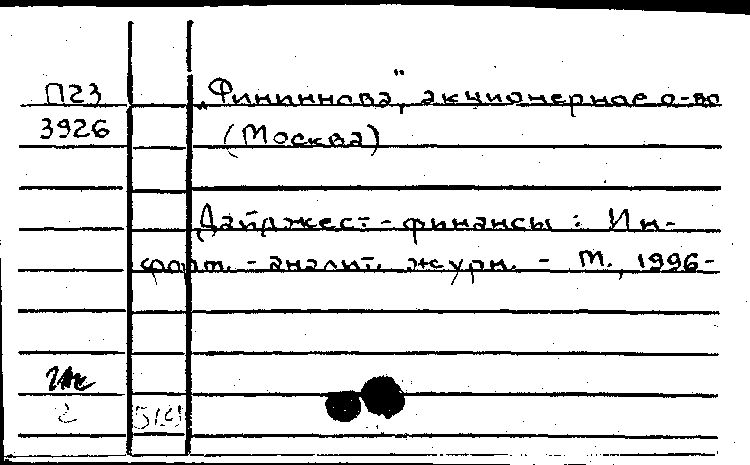 П23
3926
„Фининнова", акционерное о-во
(Москва)
Дайджест-финансы : Ин-
форм. - аналит. журн. - М., 1996-